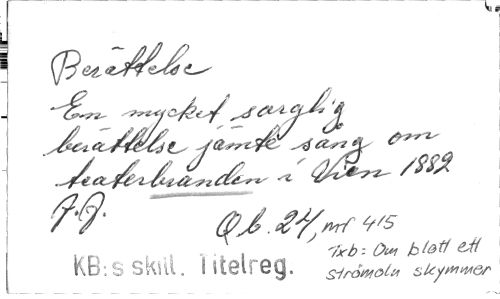 Berättelse
En mycket sorglig
berättelse jämte sång om
teaterbranden i Wien 1882
J.J.
Qb. 24, nr 415
KB:s skill. Titelreg.
Txb: Om blott ett
strömoln skymmer